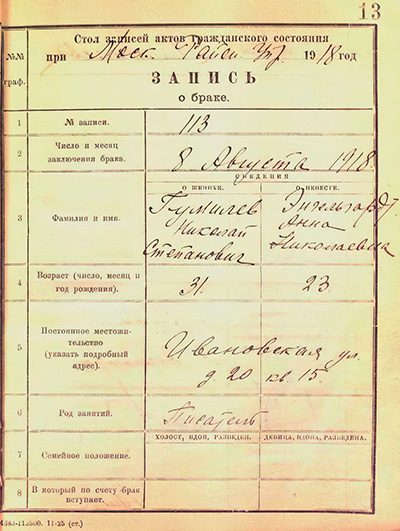 13
Стол записей актов гражданского состояния
при Моск. Райсп. Упр 1918 год
№№ граф.
ЗАПИСЬ
о браке.
1
№ записи.
113
2
Число и месяц
заключения брака.
8 Августа 1918.
СВЕДЕНИЯ
О ЖЕНИХЕ.
О НЕВЕСТЕ.
3
Фамилия и имя.
Гумилев
Николай
Степанович
Энгельгардт
Анна
Николаевна
4
Возраст (число, месяц и
год рождения).
31.
23.
5
Постоянное местожи-
тельство
(указать подробный
адрес).
Ивановская ул.
д. 20 кв. 15.
6
Род занятий.
Писатель.
ХОЛОСТ, ВДОВ, РАЗВЕДЕН.
ДЕВИЦА, ВДОВА, РАЗВЕДЕНА.
7
Семейное положение.
8
В который по счету брак
вступает.
11-23 (ст.)